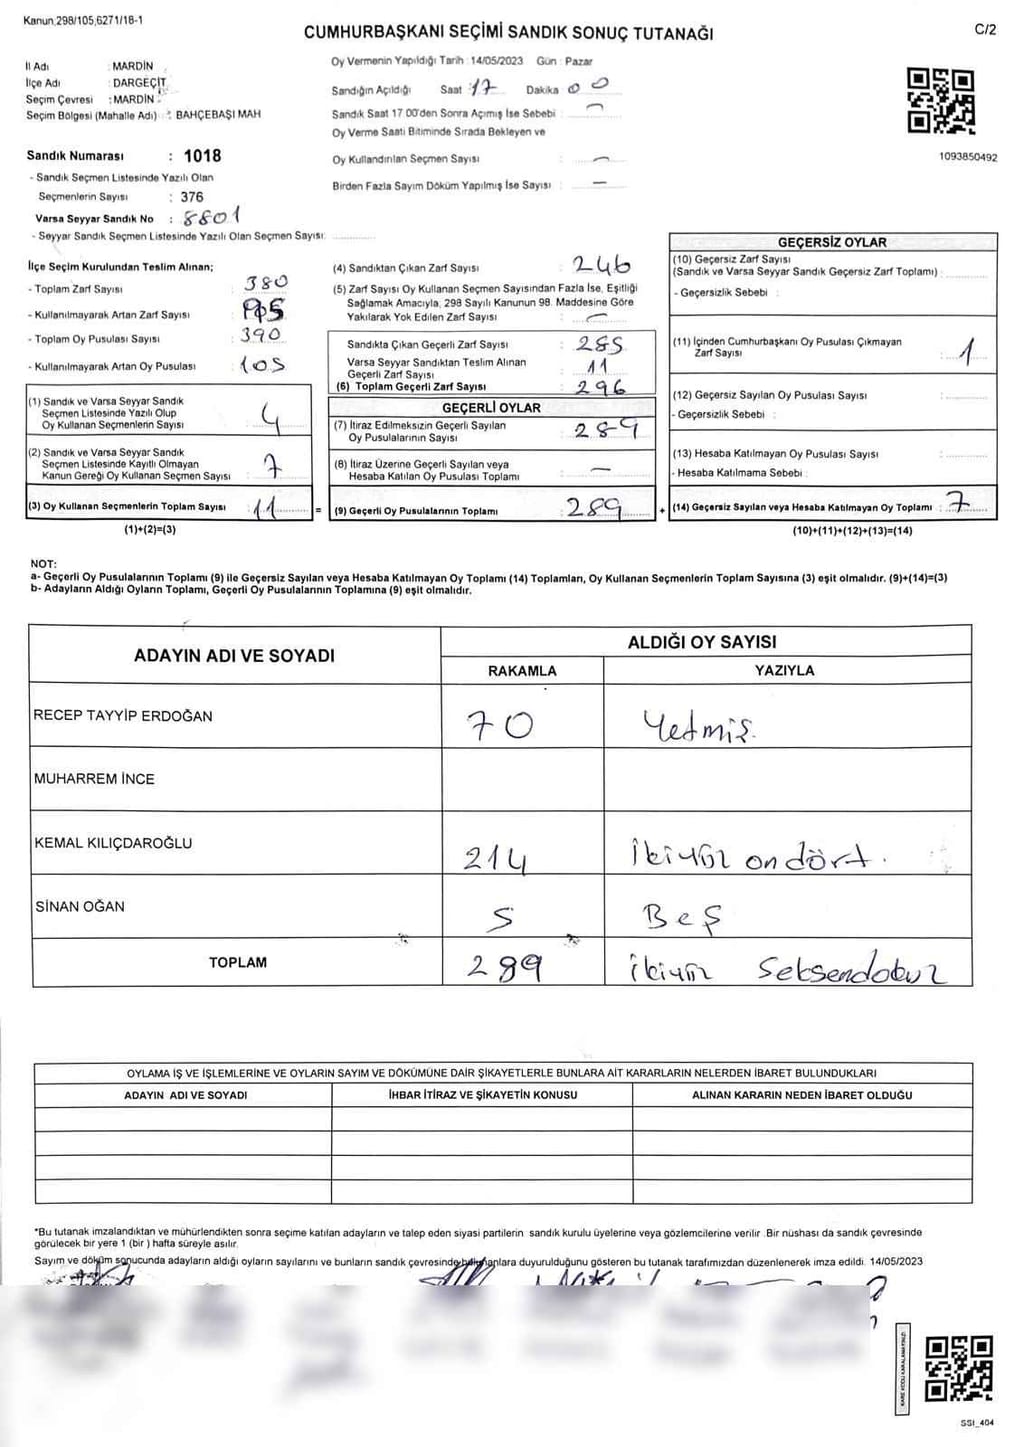 Kanun 298/105,6271/18-1
CUMHURBAŞKANI SEÇİMİ SANDIK SONUÇ TUTANAĞI
C/2
İl Adı : MARDİN
İlçe Adı : DARGEÇİT
Seçim Çevresi : MARDİN
Seçim Bölgesi (Mahalle Adı) : BAHÇEBAŞI MAH
Oy Vermenin Yapıldığı Tarih : 14/05/2023 Gün : Pazar
Sandığın Açıldığı Saat 17 Dakika 00
Sandık Saat 17 00'den Sonra Açımış İse Sebebi : —
Oy Verme Saati Bitiminde Sırada Bekleyen ve
Oy Kullandırılan Seçmen Sayısı : —
Birden Fazla Sayım Döküm Yapılmış İse Sayısı : —
1093850492
Sandık Numarası : 1018
- Sandık Seçmen Listesinde Yazılı Olan
Seçmenlerin Sayısı : 376
Varsa Seyyar Sandık No : 8801
- Seyyar Sandık Seçmen Listesinde Yazılı Olan Seçmen Sayısı:
İlçe Seçim Kurulundan Teslim Alınan;
- Toplam Zarf Sayısı : 380
- Kullanılmayarak Artan Zarf Sayısı :
- Toplam Oy Pusulası Sayısı : 390
- Kullanılmayarak Artan Oy Pusulası : 105
(1) Sandık ve Varsa Seyyar Sandık
Seçmen Listesinde Yazılı Olup
Oy Kullanan Seçmenlerin Sayısı : 4
(2) Sandık ve Varsa Seyyar Sandık
Seçmen Listesinde Kayıtlı Olmayan
Kanun Gereği Oy Kullanan Seçmen Sayısı : 7
(3) Oy Kullanan Seçmenlerin Toplam Sayısı : 11
(1)+(2)=(3)
=
(4) Sandıktan Çıkan Zarf Sayısı : 246
(5) Zarf Sayısı Oy Kullanan Seçmen Sayısından Fazla İse, Eşitliği
Sağlamak Amacıyla, 298 Sayılı Kanunun 98. Maddesine Göre
Yakılarak Yok Edilen Zarf Sayısı : —
Sandıkta Çıkan Geçerli Zarf Sayısı : 285
Varsa Seyyar Sandıktan Teslim Alınan
Geçerli Zarf Sayısı : 11
(6) Toplam Geçerli Zarf Sayısı : 296
GEÇERLİ OYLAR
(7) İtiraz Edilmeksizin Geçerli Sayılan
Oy Pusulalarının Sayısı : 289
(8) İtiraz Üzerine Geçerli Sayılan veya
Hesaba Katılan Oy Pusulası Toplamı : —
(9) Geçerli Oy Pusulalarının Toplamı : 289
+
GEÇERSİZ OYLAR
(10) Geçersiz Zarf Sayısı
(Sandık ve Varsa Seyyar Sandık Geçersiz Zarf Toplamı) :
- Geçersizlik Sebebi :
(11) İçinden Cumhurbaşkanı Oy Pusulası Çıkmayan
Zarf Sayısı : 1
(12) Geçersiz Sayılan Oy Pusulası Sayısı :
- Geçersizlik Sebebi :
(13) Hesaba Katılmayan Oy Pusulası Sayısı :
- Hesaba Katılmama Sebebi :
(14) Geçersiz Sayılan veya Hesaba Katılmayan Oy Toplamı : 7
(10)+(11)+(12)+(13)=(14)
NOT:
a- Geçerli Oy Pusulalarının Toplamı (9) ile Geçersiz Sayılan veya Hesaba Katılmayan Oy Toplamı (14) Toplamları, Oy Kullanan Seçmenlerin Toplam Sayısına (3) eşit olmalıdır. (9)+(14)=(3)
b- Adayların Aldığı Oyların Toplamı, Geçerli Oy Pusulalarının Toplamına (9) eşit olmalıdır.
ADAYIN ADI VE SOYADI
ALDIĞI OY SAYISI
RAKAMLA
YAZIYLA
RECEP TAYYİP ERDOĞAN 70 Yetmiş.
MUHARREM İNCE
KEMAL KILIÇDAROĞLU 214 İkiyüz ondört.
SİNAN OĞAN 5 Beş
TOPLAM 289 ikiyüz Seksendokuz
OYLAMA İŞ VE İŞLEMLERİNE VE OYLARIN SAYIM VE DÖKÜMÜNE DAİR ŞİKAYETLERLE BUNLARA AİT KARARLARIN NELERDEN İBARET BULUNDUKLARI
ADAYIN ADI VE SOYADI
İHBAR İTİRAZ VE ŞİKAYETİN KONUSU
ALINAN KARARIN NEDEN İBARET OLDUĞU
*Bu tutanak imzalandıktan ve mühürlendikten sonra seçime katılan adayların ve talep eden siyasi partilerin sandık kurulu üyelerine veya gözlemcilerine verilir .Bir nüshası da sandık çevresinde
görülecek bir yere 1 (bir ) hafta süreyle asılır.
Sayım ve döküm sonucunda adayların aldığı oyların sayılarını ve bunların sandık çevresinde bulunanlara duyurulduğunu gösteren bu tutanak tarafımızdan düzenlenerek imza edildi. 14/05/2023
KARE KODU KARALAMAYINIZ!
SSI_404